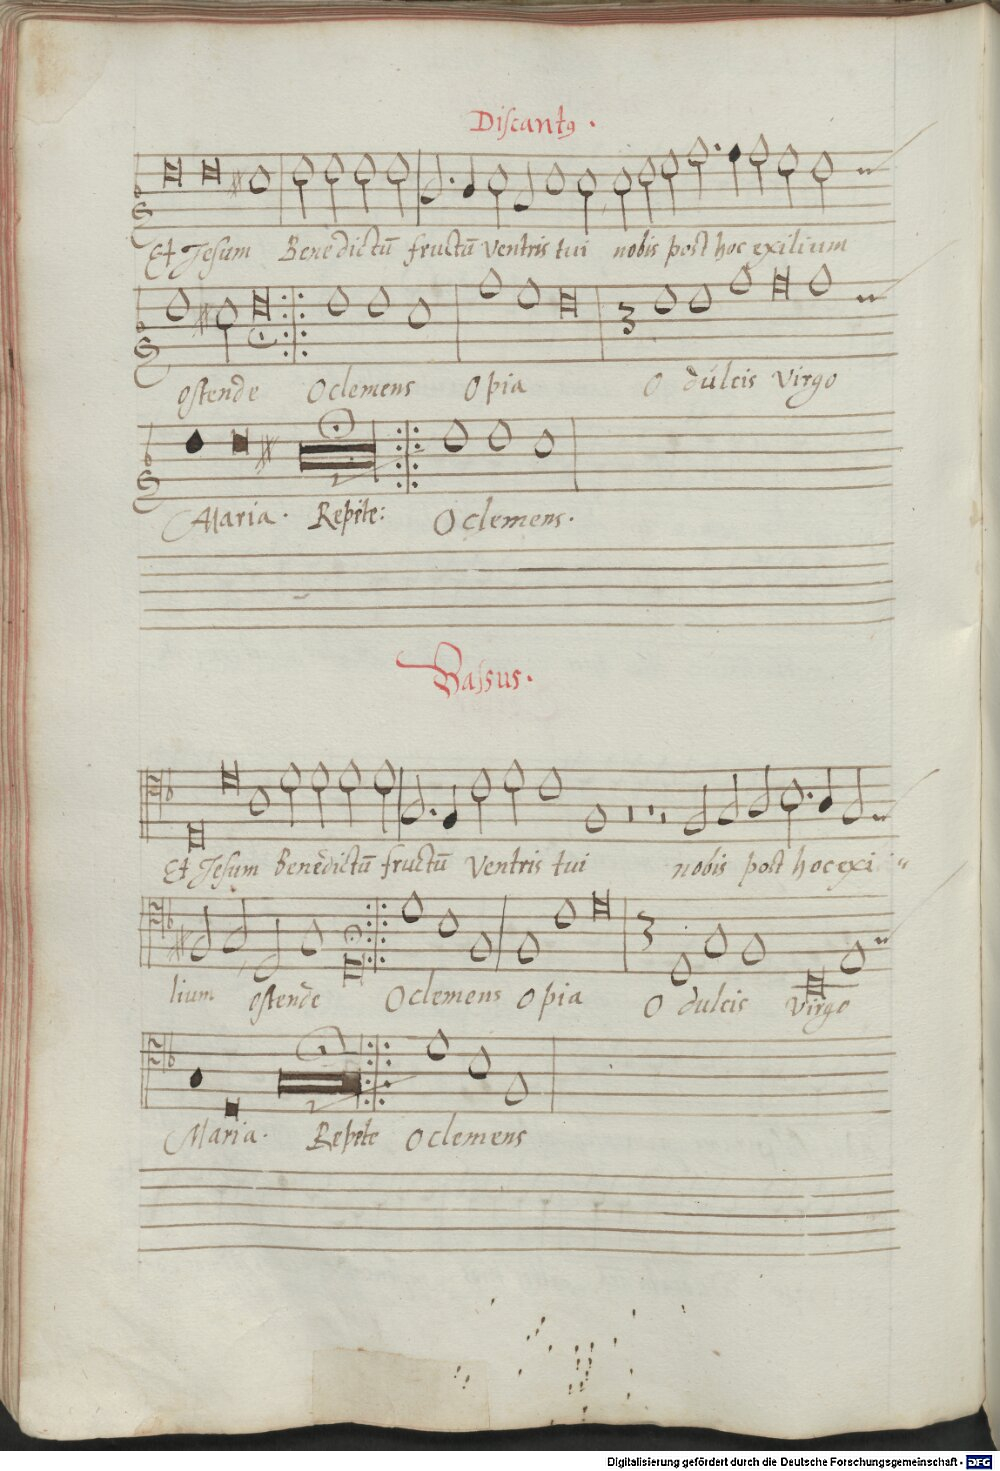 Discantꝰ.
Et Jesum Benedictū fructū ventris tui nobis post hoc exilium
ostende O clemens O pia O dulcis Virgo
Maria. Repite: O clemens.
Bassus.
Et Jesum Benedictū fructū Ventris tui nobis post hoc exi
lium ostende O clemens O pia O dulcis Virgo
Maria. Repite O clemens
Digitalisierung gefördert durch die Deutsche Forschungsgemeinschaft - DFG